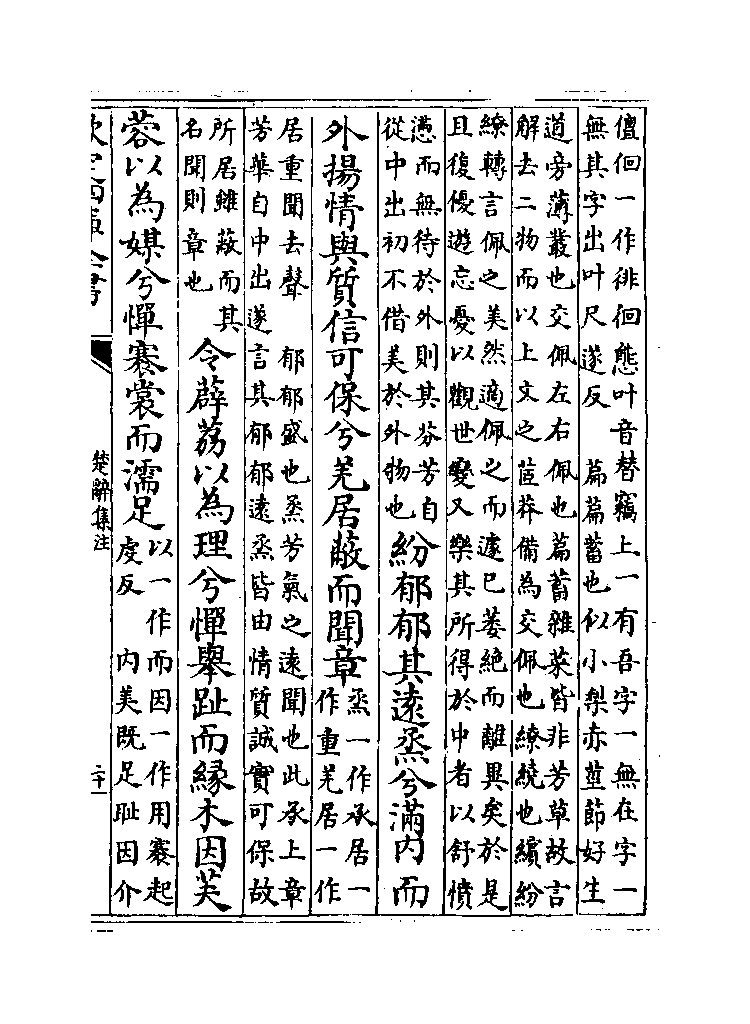 儃佪一作徘徊態叶音替竊上一有吾字一無在字一
無其字出叶尺遂反　萹萹蓄也似小梨赤莖節好生
道旁薄叢也交佩左右佩也萹蓄雜菜皆非芳草故言
解去二物而以上文之茝莽備為交佩也繚繞也繽紛
繚轉言佩之美然適佩之而遽已萎絶而離異矣於是
且復優遊忘憂以觀世變又樂其所得於中者以舒憤
懣而無待於外則其芬芳自
從中出初不借美於外物也
紛郁郁其遠烝兮滿内而
外揚情與質信可保兮羌居蔽而聞章
烝一作承居一
作重羌居一作
居重聞去聲　郁郁盛也烝芳氣之遠聞也此承上章
芳華自中出遂言其郁郁遠烝皆由情質誠實可保故
所居雖蔽而其
名聞則章也
令薜荔以為理兮憚舉趾而緣木因芙
蓉以為媒兮憚褰裳而濡足
以一作而因一作用褰起
虔反　内美既足耻因介
欽定四庫全書
楚辭集注
二十一